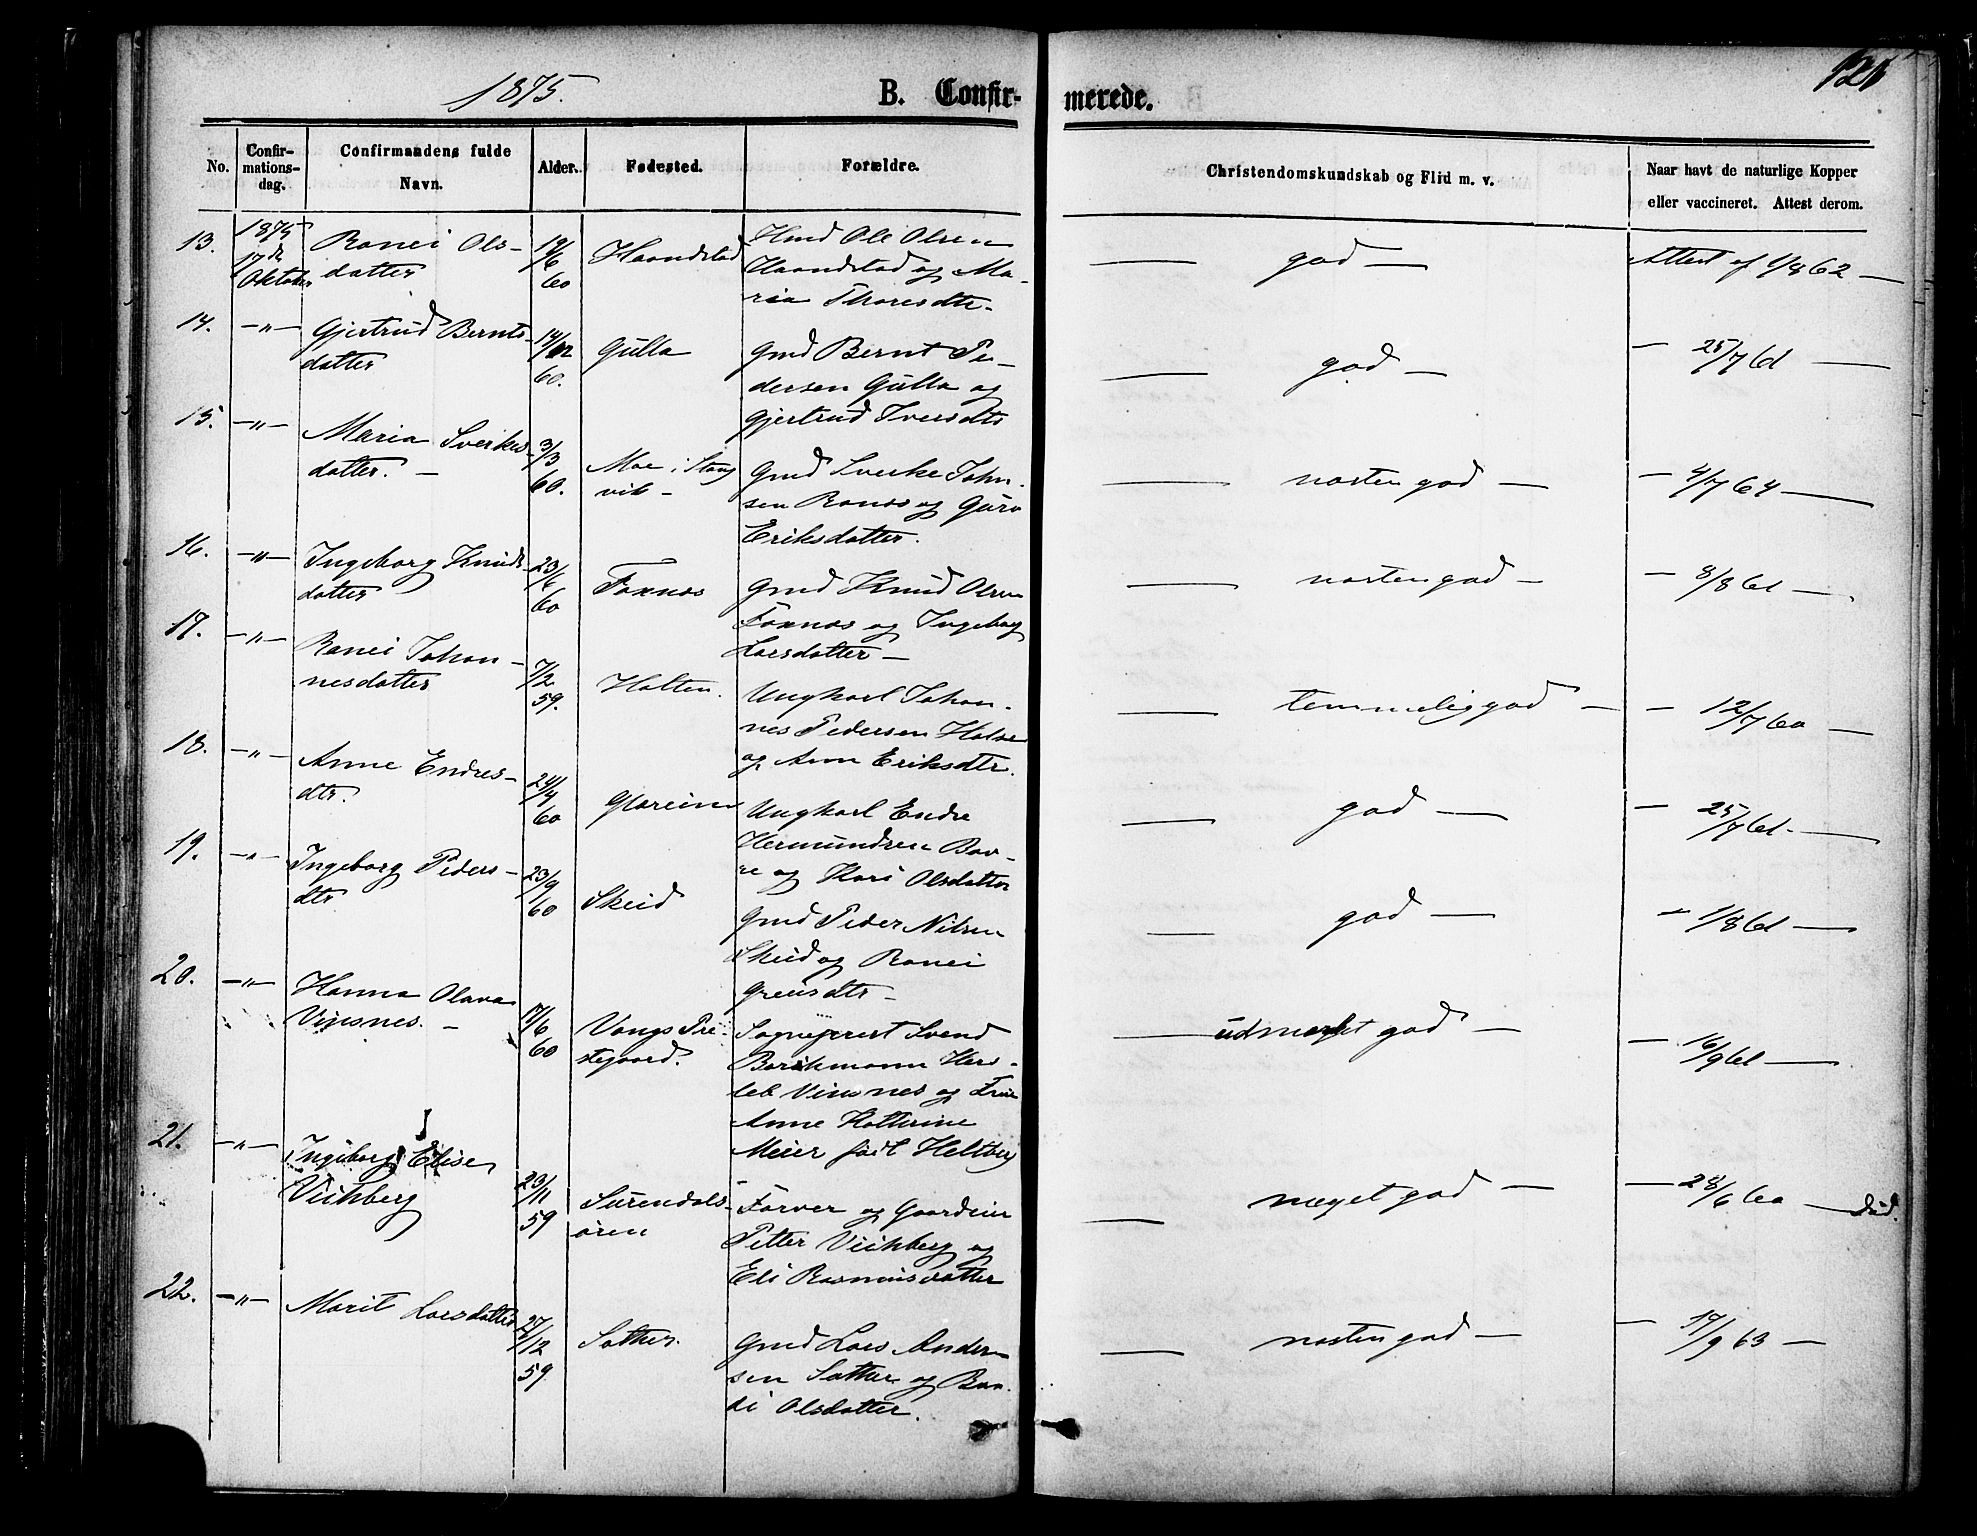 1875.
B. Confir-
merede.
No.
Confir-
mations-
dag.
Confirmandens fulde
Navn.
Alder.
Fødested.
Forældre.
Christendomskundskab og Flid m. v.
Naar havt de naturlige Kopper
eller vaccineret. Attest derom.
13.
1875
17de
Oktober
Ranei Ols-
datter
19/6
60
Haandstad
Hmd Ole Olsen
Haandstad og Ma-
ria Thoresdtr.
— god —
Attest af 1/8 62 —
14.
—"—
Gjertrud Bernts-
datter
14/12
60.
Gulla
Gmd Bernt Pe-
dersen Gulla og
Gjertrud Iversdtr
— god —
— 25/7 61 —
15.
—"—
Maria Sverkes-
datter. —
3/3
60.
Moe i Stang
vik —
Gmd Sverke John-
sen Ranes og Guro
Eriksdatter.
— næsten god —
— 4/7 64 —
16.
—"—
Ingeborg Knuds-
datter
23/6
60
Foxnes
Gmd Knud Olsen
Foxnes og Ingeborg
Larsdatter —
— næsten god —
— 8/8 61 —
17.
—"—
Ranei Johan-
nesdatter
7/2
59.
Holten.
Ungkarl Johan-
nes Pedersen Halse
og Ann Eriksdtr.
— temmelig god —
— 12/7 60 —
18.
—"—
Anne Endres-
dtr.
24/4
60
Glæreim
Ungkarl Endre
Hermundsen Bøv-
re og Kari Olsdatter
— god —
— 25/7 61 —
19.
—"—
Ingeborg Peders-
dtr
23/9
60
Skeid
Gmd Peder Nilsen
Skeid og Ranei
Greiisdtr —
— god —
— 1/8 61 —
20.
—"—
Hanna Olava
Vinsnes. —
17/6
60
Vangs Pre-
stegaard.
Sogneprest Svend
Borchmann Hers-
leb Vinsnes og Frue
Anne Katterine
Meier født Heltberg
— udmerket god —
— 16/9 61 —
21.
—"—
Ingeborg Elise
Viihberg
23/11
59
Surendals-
øren
Farver og Gaardeier
Petter Viihberg og
Eli Rasmusdatter
— meget god —
— 28/6 60 — død.
22.
—"—
Marit Larsdatter
27/12
59
Sæther.
Gmd Lars Ander-
sen Sæther og Ran-
di Olsdatter.
— næsten god —
— 17/9 63 —